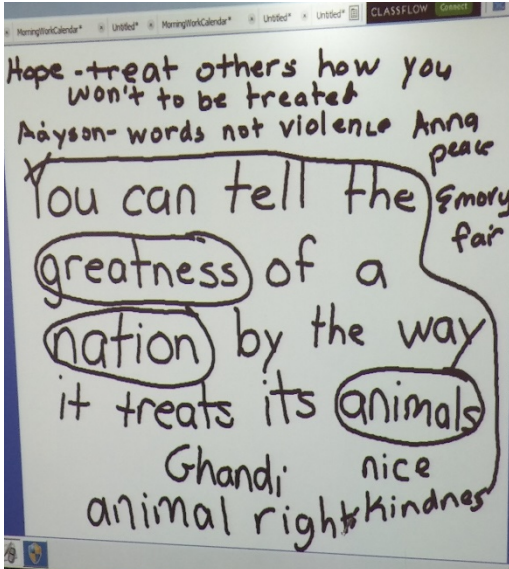 MorningWorkCalendar* Untitled* MorningWorkCalendar* Untitled* Untitled* CLASSFLOW Connect
Hope - treat others how you
won't to be treated
Addyson- words not violence Anna
peace
You can tell the Emory
fair
greatness of a
nation by the way
it treats its animals
Ghandi nice
animal rights kindnes